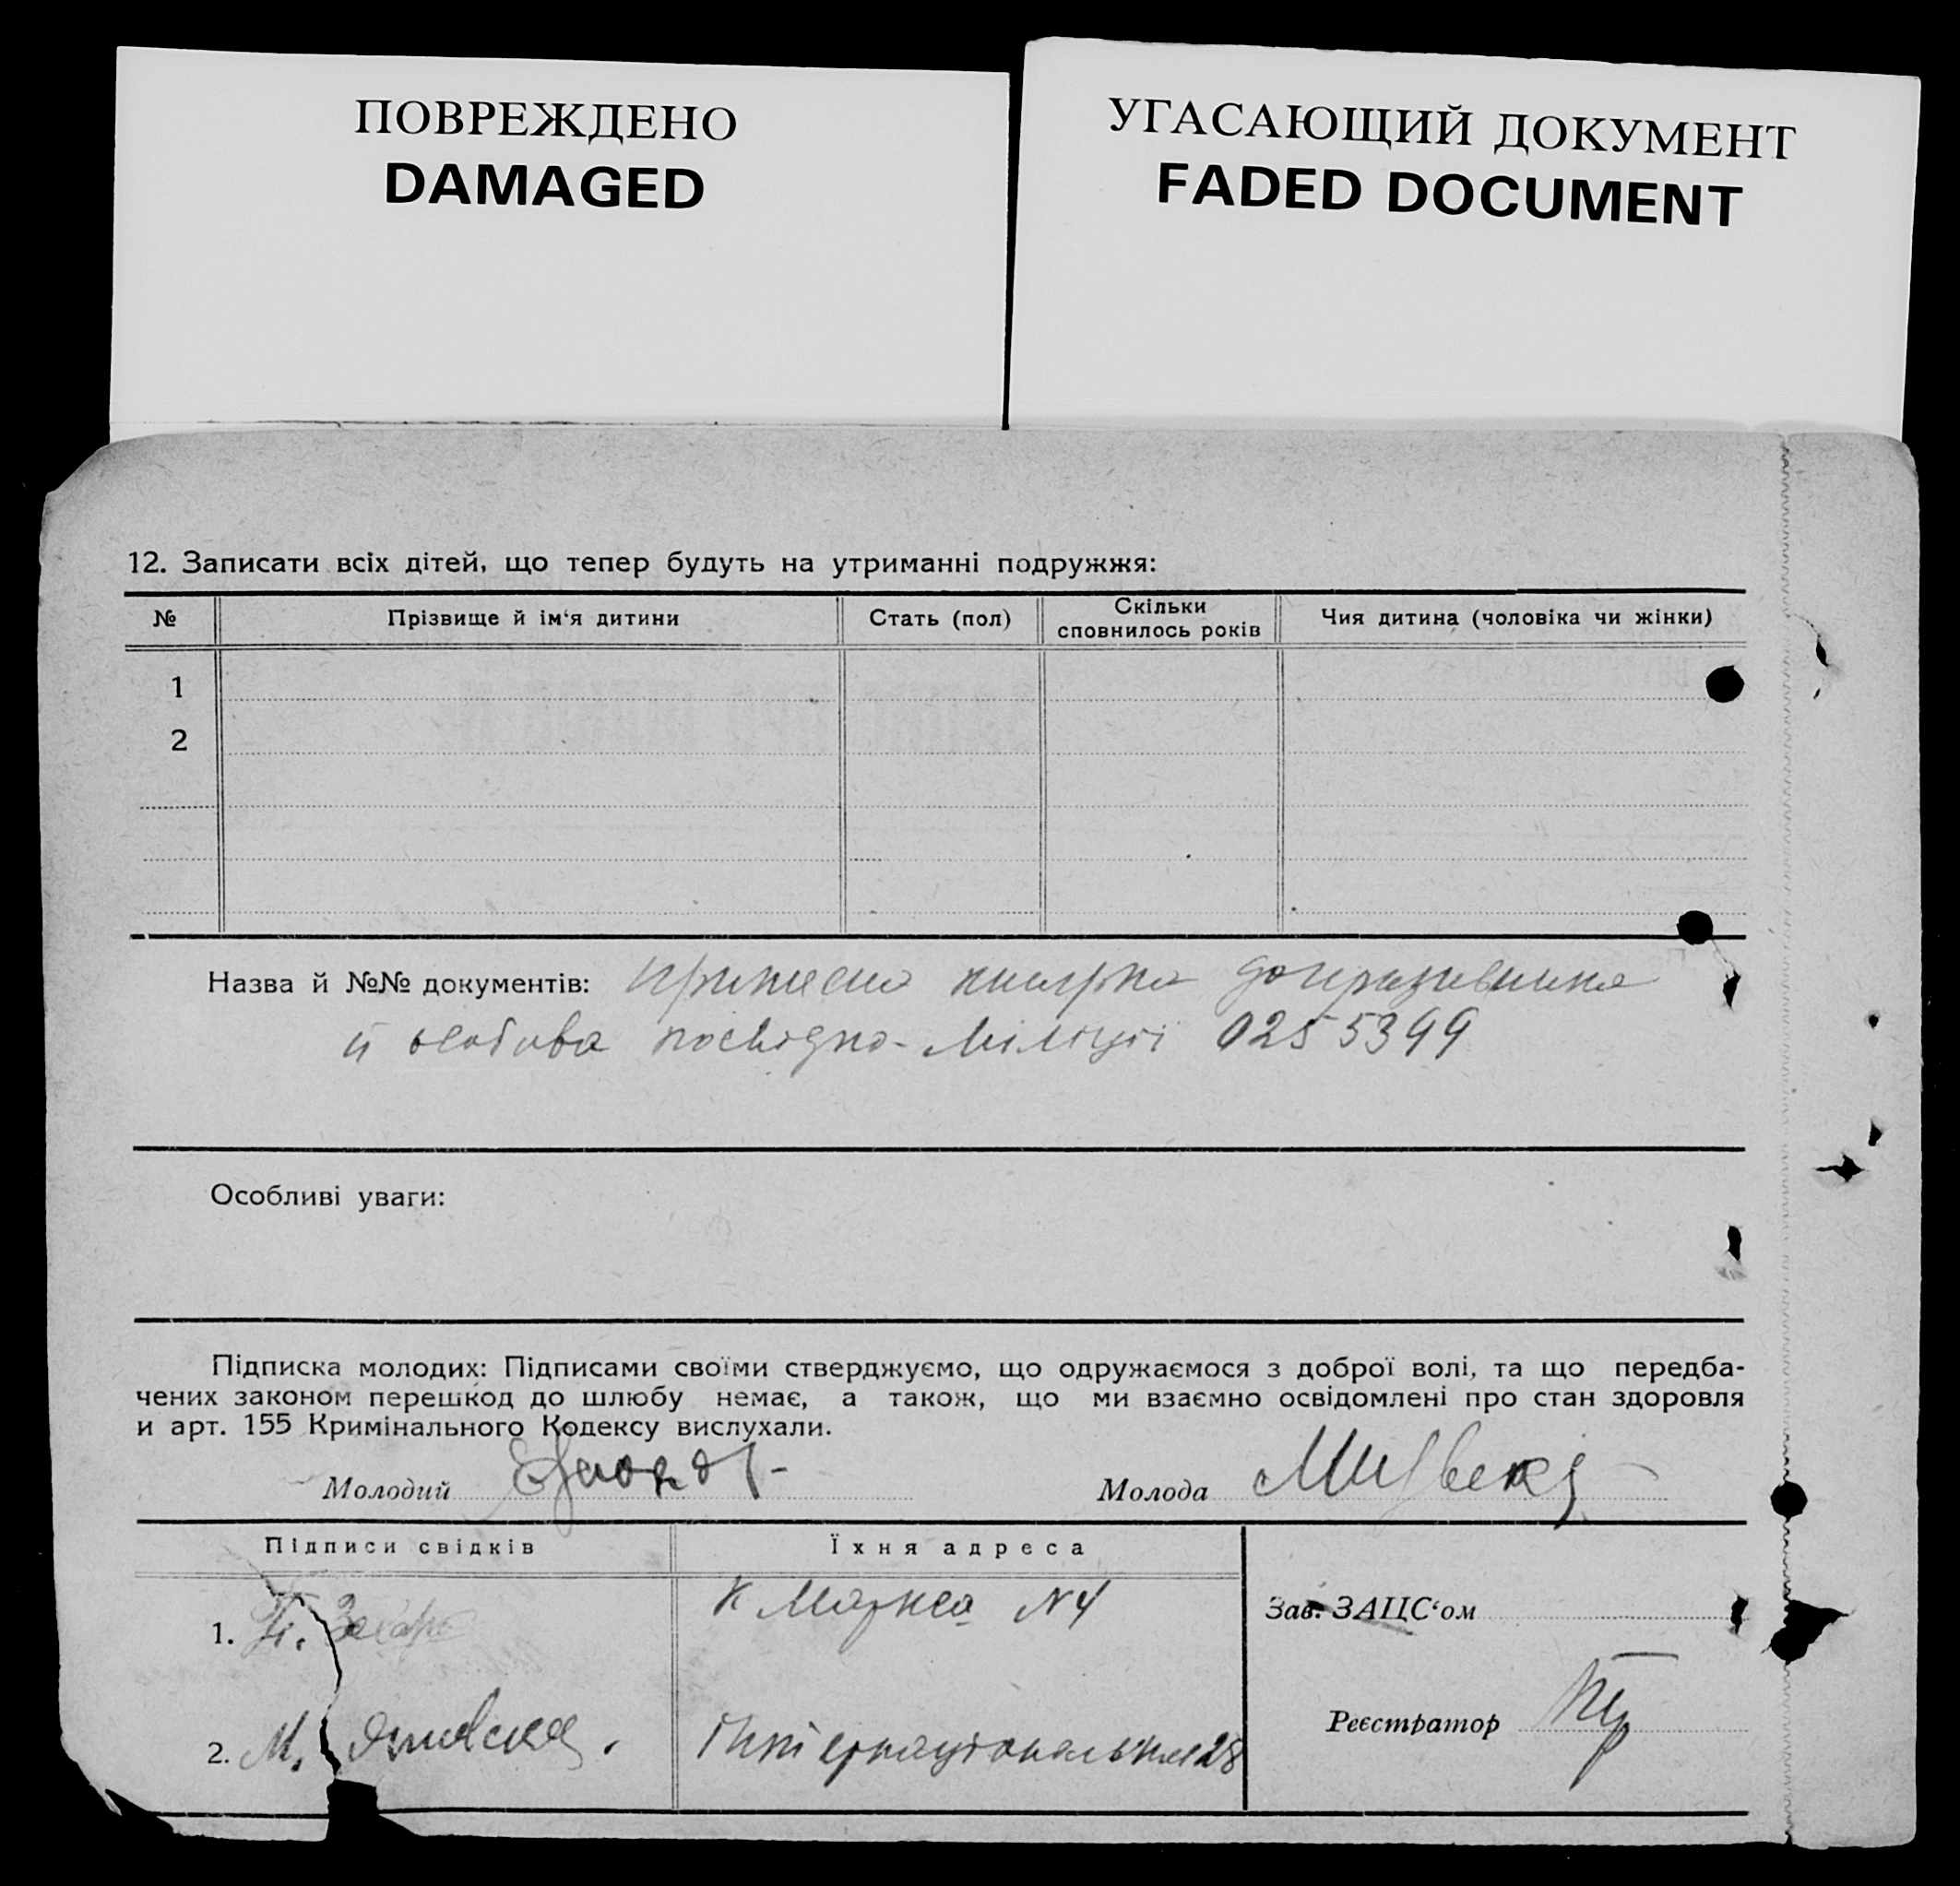 ПОВРЕЖДЕНО
DAMAGED
УГАСАЮЩИЙ ДОКУМЕНТ
FADED DOCUMENT
12. Записати всіх дітей, що тепер будуть на утриманні подружжя:
№ Прізвище й ім‘я дитини Стать (пол) Скільки сповнилось років Чия дитина (чоловіка чи жінки)
1
2
Назва й №№ документів: книжка
й особова посвідка міліції 0255399
Особливі уваги:
Підписка молодих: Підписами своїми стверджуємо, що одружаємося з доброї волі, та що передба-
чених законом перешкод до шлюбу немає, а також, що ми взаємно освідомлені про стан здоровля
и арт. 155 Кримінального Кодексу вислухали.
Молодий Молода
Підписи свідків Їхня адреса
1. К Маркса N4
Зав. ЗАЦС‘ом
2. М. Інтернаціональна 28
Реєстратор